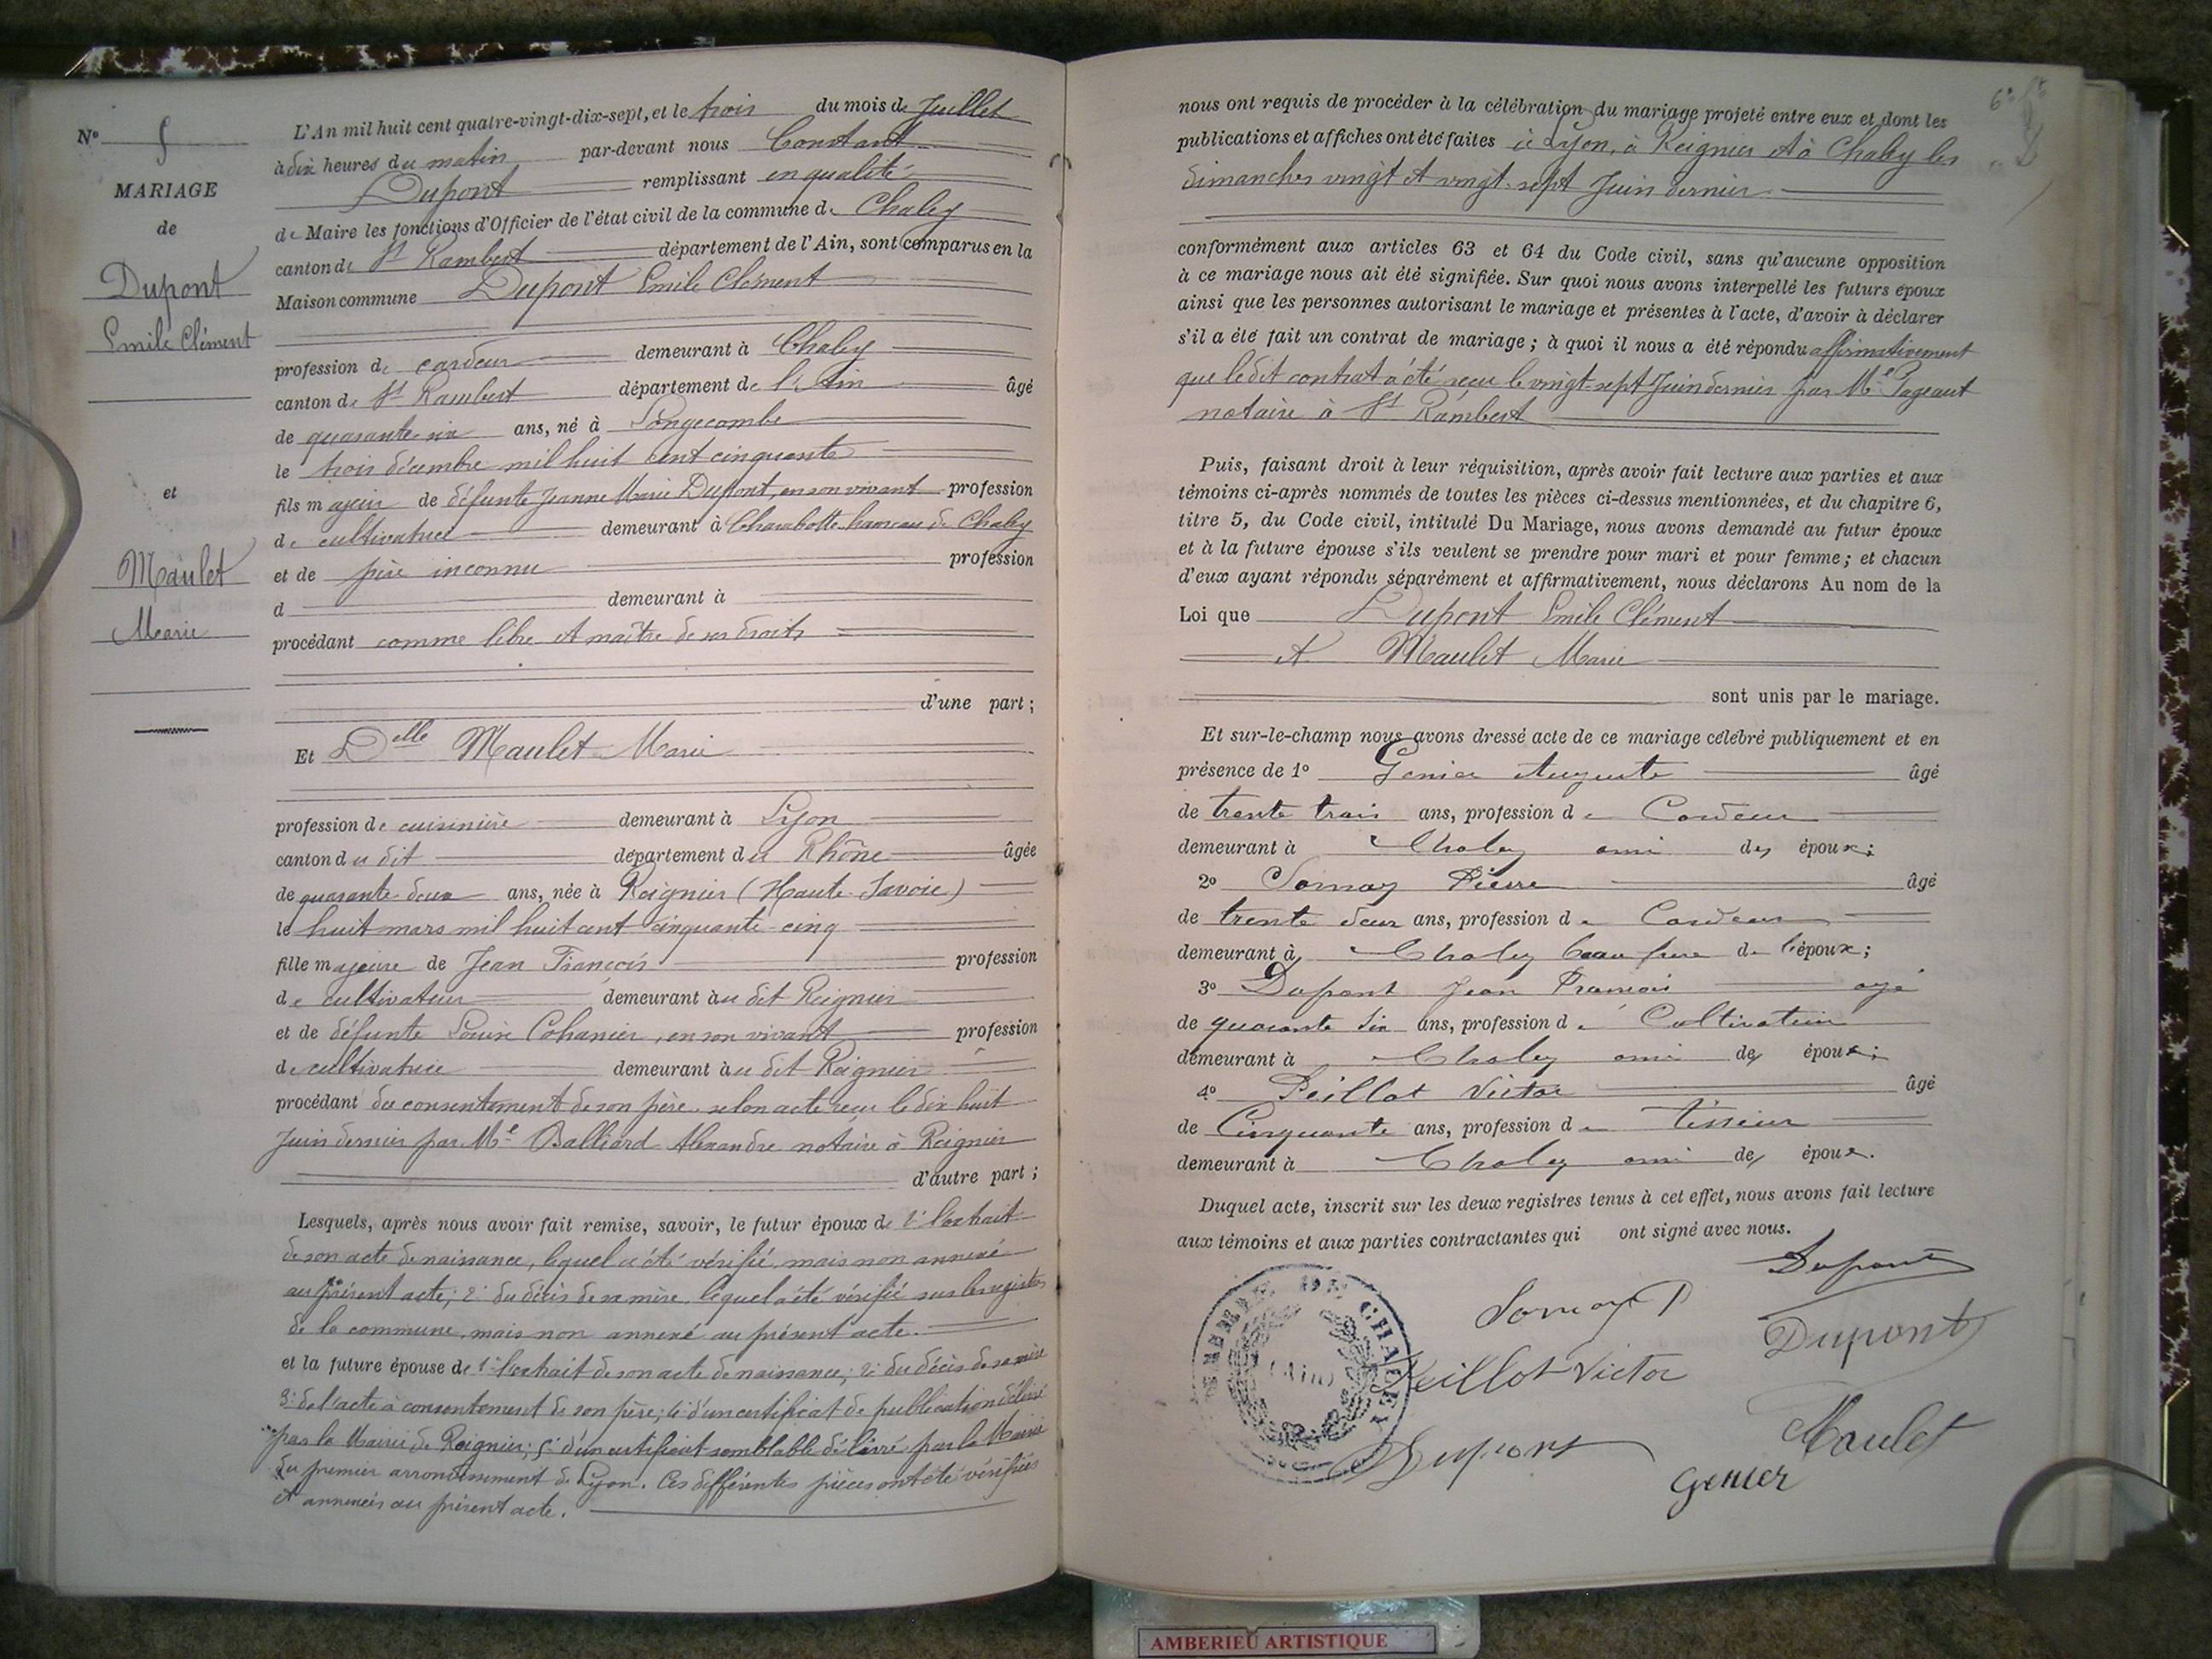 N° 5
MARIAGE
de
Dupont
Emile Clément
et
Maulet
Marie
L'An mil huit cent quatre-vingt-dix-sept, et le trois du mois de Juillet
à dix heures du matin par-devant nous Constant
Dupont remplissant en qualité
de Maire les fonctions d'Officier de l'état civil de la commune de Chaley
canton de St Rambert département de l'Ain, sont comparus en la
Maison commune Dupont Emile Clément
profession de cardeur demeurant à Chaley
canton de St Rambert département de l'Ain âgé
de quarante-six ans, né à Longecombe
le trois décembre mil huit cent cinquante
fils majeur de défunte Jeanne Marie Dupont, en son vivant profession
de cultivatrice demeurant à Charabotte hameau de Chaley
et de père inconnu profession
d demeurant à
procédant comme libre et maître de ses droits
d'une part ;
Et Delle Maulet Marie
profession de cuisinière demeurant à Lyon
canton du dit département du Rhône âgée
de quarante-deux ans, née à Reignier (Haute-Savoie)
le huit mars mil huit cent cinquante-cinq
fille majeure de Jean François profession
de cultivateur demeurant au dit Reignier
et de défunte Louise Cohanier, en son vivant profession
de cultivatrice demeurant au dit Reignier
procédant du consentement de son père selon acte reçu le dix huit
Juin dernier par Me Balliard Alexandre notaire à Reignier
d'autre part ;
Lesquels, après nous avoir fait remise, savoir, le futur époux de 1° l'extrait
de son acte de naissance, lequel a été vérifié, mais non annexé
au présent acte; 2° du décès de sa mère, lequel a été vérifié sur les registres
de la commune, mais non annexé au présent acte.
et la future épouse de 1° l'extrait de son acte de naissance; 2° du décès de sa mère
3° de l'acte à consentement de son père; 4° d'un certificat de publication délivré
par la Mairie de Reignier; 5° d'un certificat semblable délivré par la Mairie
du premier arrondissement de Lyon. Ces différentes pièces ont été vérifiées
et annexées au présent acte.
nous ont requis de procéder à la célébration du mariage projeté entre eux et dont les
publications et affiches ont été faites à Lyon, à Reignier et à Chaley les
dimanches vingt et vingt-sept Juin dernier
conformément aux articles 63 et 64 du Code civil, sans qu'aucune opposition
à ce mariage nous ait été signifiée. Sur quoi nous avons interpellé les futurs époux
ainsi que les personnes autorisant le mariage et présentes à l'acte, d'avoir à déclarer
s'il a été fait un contrat de mariage ; à quoi il nous a été répondu affirmativement
que le dit contrat a été reçu le vingt-sept Juin dernier par Me Pageaut
notaire à St Rambert
Puis, faisant droit à leur réquisition, après avoir fait lecture aux parties et aux
témoins ci-après nommés de toutes les pièces ci-dessus mentionnées, et du chapitre 6,
titre 5, du Code civil, intitulé Du Mariage, nous avons demandé au futur époux
et à la future épouse s'ils veulent se prendre pour mari et pour femme ; et chacun
d'eux ayant répondu séparément et affirmativement, nous déclarons Au nom de la
Loi que Dupont Emile Clément
et Maulet Marie
sont unis par le mariage.
Et sur-le-champ nous avons dressé acte de ce mariage célébré publiquement et en
présence de 1° Genier Auguste âgé
de trente trois ans, profession de Cardeur
demeurant à Chaley ami des époux ;
2° Sornay Pierre âgé
de trente deux ans, profession de Cardeur
demeurant à Chaley beau frère de l'époux ;
3° Dupont Jean François âgé
de quarante six ans, profession de Cultivateur
demeurant à Chaley ami des époux ;
4° Peillot Victor âgé
de Cinquante ans, profession de tisseur
demeurant à Chaley ami des époux.
Duquel acte, inscrit sur les deux registres tenus à cet effet, nous avons fait lecture
aux témoins et aux parties contractantes qui ont signé avec nous.
Dupont
Sornay P
Dupont
Peillot Victor
Maulet
Dupont
Genier
DE CHALEY
(Ain)
AMBERIEU ARTISTIQUE